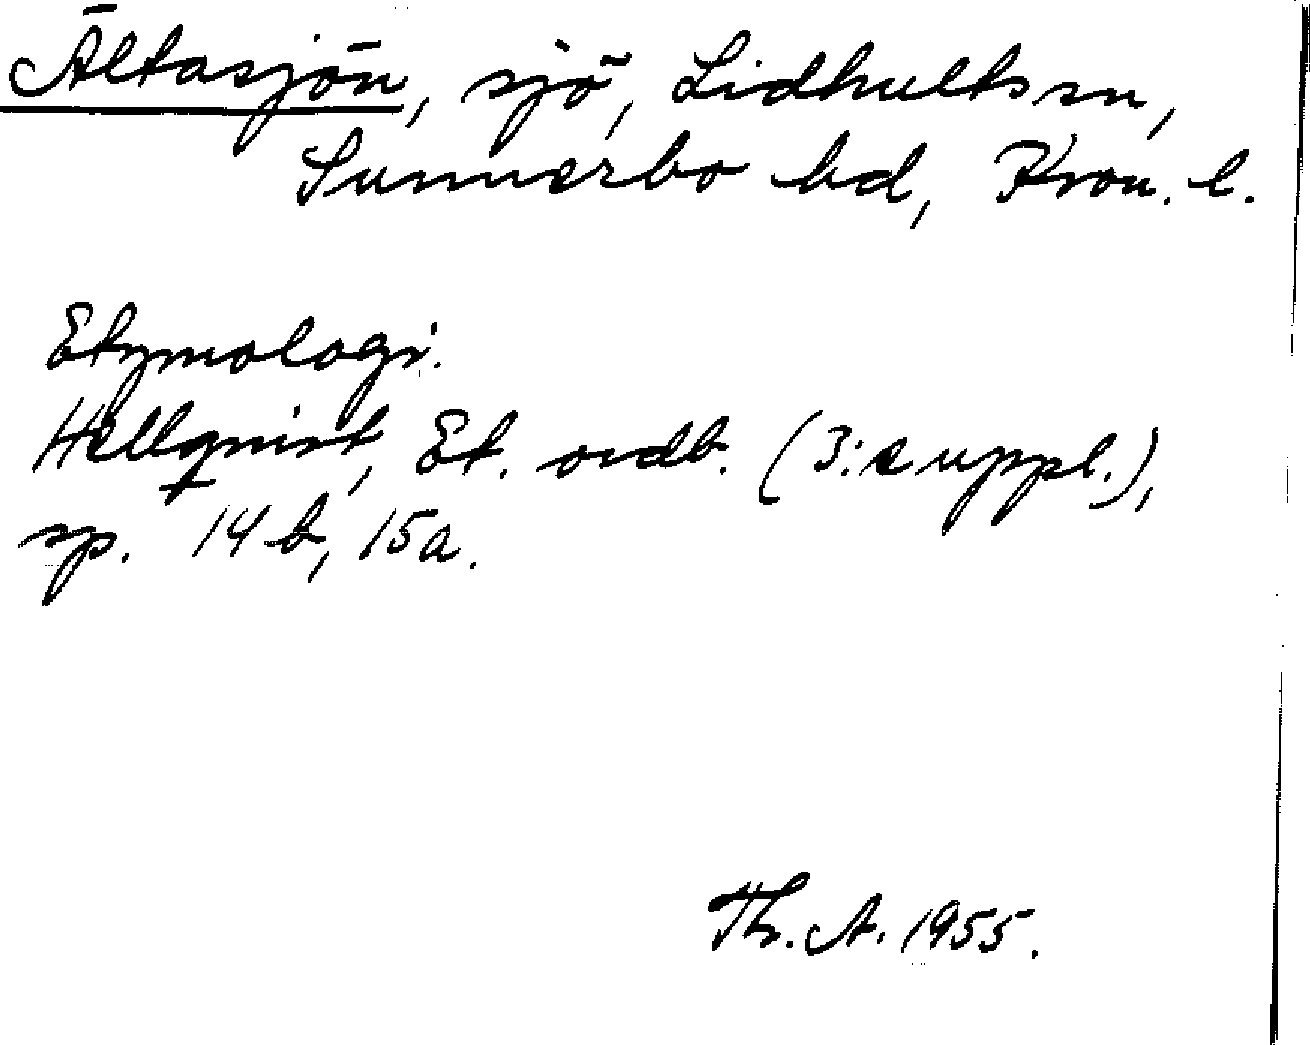 Ältasjön, sjö, Lidhults sn,
Sunnerbo hd, Kron. l.
Etymologi.
Hellquist, Et. ordb. (3:e uppl.),
sp. 14 b, 15a.
Th. A. 1955.